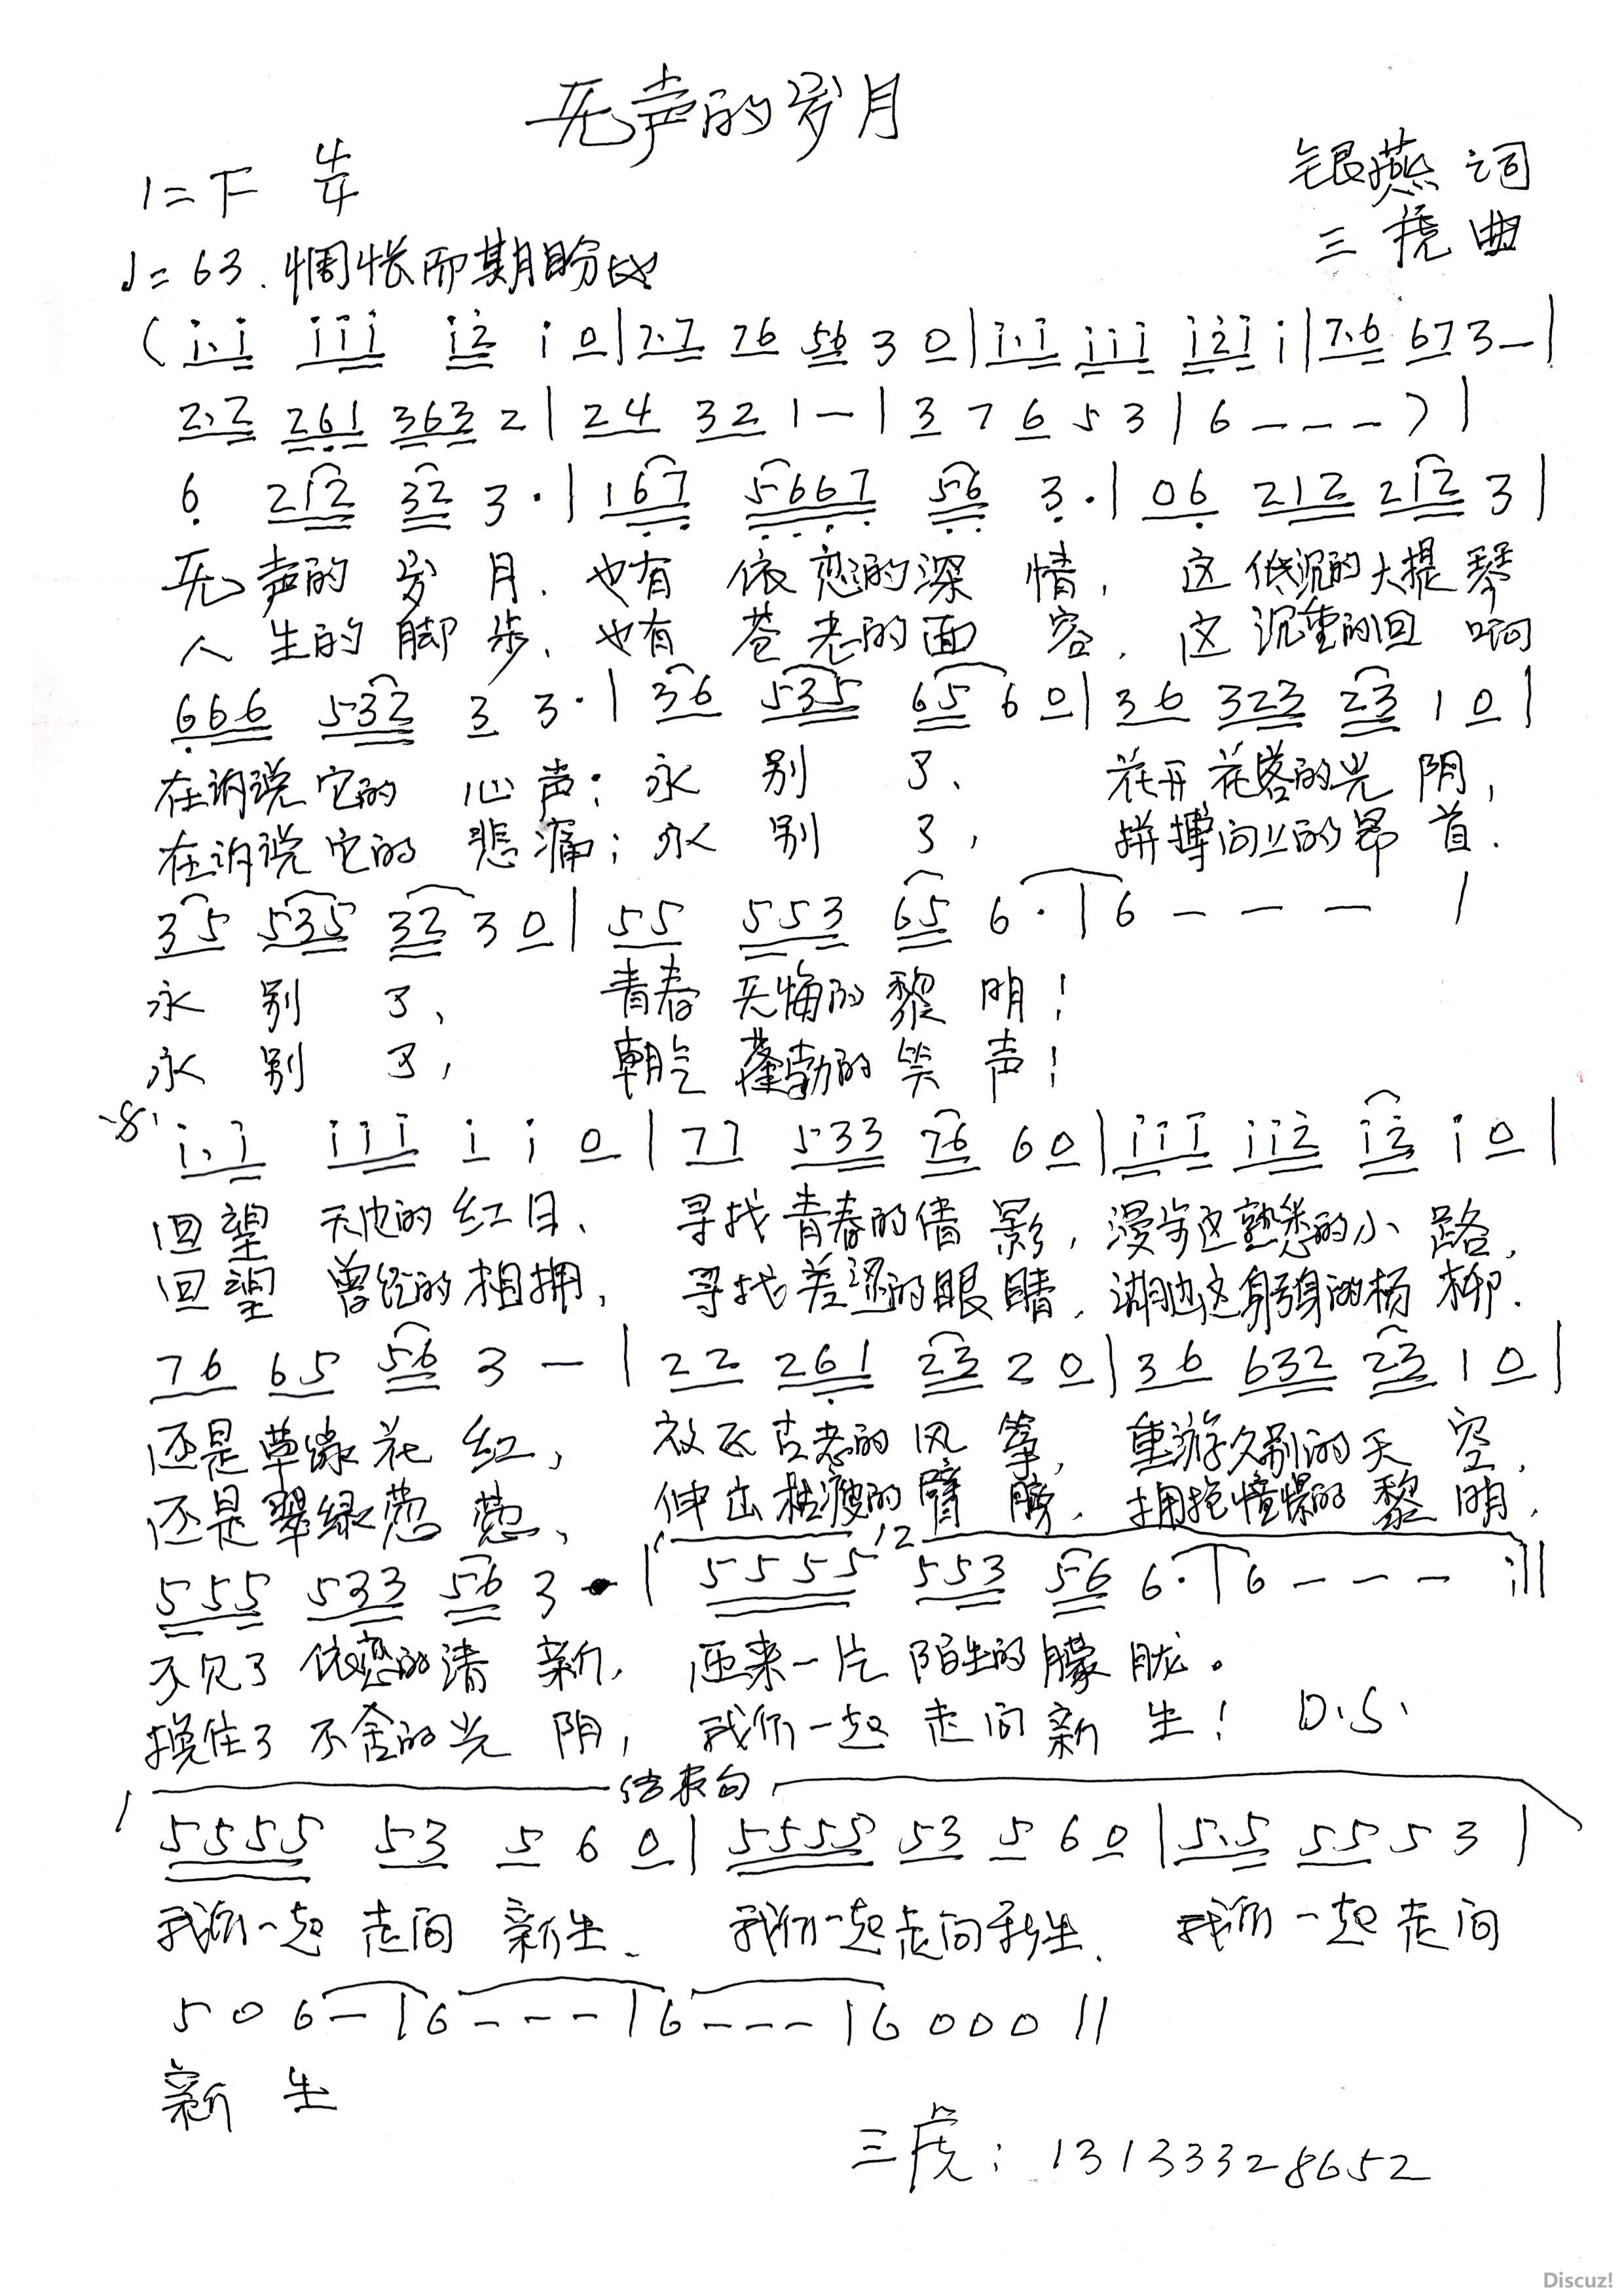 无声的岁月
1=F 4/4
银燕 词
三虎 曲
♩=63. 惆怅而期盼地
(i.i iii i2 i 0|7.7 76 56 3 0|i.i iii i2i i|7.6 67 3 -|
2.2 261 363 2|24 32 1 -|3 7 6 5 3|6 - - -)|
6 212 32 3·|167 5667 56 3·|06 212 212 3|
无声的岁月、也有依恋的深情，这低沉的大提琴
人生的脚步、也有苍老的面容，这沉重的回响
666 532 3 3·|36 535 65 6 0|36 323 23 1 0|
在诉说它的心声：永别了、花开花落的光阴，
在诉说它的悲痛；永别了，拼搏向上的昂首.
35 535 32 3 0|55 553 65 6·|6 - - -|
永别了、青春无悔的黎明！
永别了，朝气蓬勃的笑声！
i.i iii i i 0|77 533 76 60|iii ii2 i2 i 0|
回望天边的红日、寻找青春的倩影，漫步这熟悉的小路，
回望曾经的相拥，寻找羞涩的眼睛，湖边这躬身的杨柳.
76 65 56 3 -|22 261 23 2 0|36 632 23 1 0|
还是草绿花红，放飞古老的风筝，重游久别的天空，
还是翠绿葱葱、伸出枯瘦的臂膀，拥抱憧憬的黎明，
555 533 56 3·|5555 12 553 56 6·|6 - - - :||
不见了依恋的清新，迎来一片陌生的朦胧。
挽住了不舍的光阴，我们一起走向新生！ D.S.
结束句
5555 53 5 6 0|5555 53 5 6 0|5.5 55 5 3|
我们一起走向新生、我们一起走向新生、我们一起走向
5 0 6 -|6 - - -|6 - - -|6 0 0 0||
新生
三虎：13133328652
Discuz!